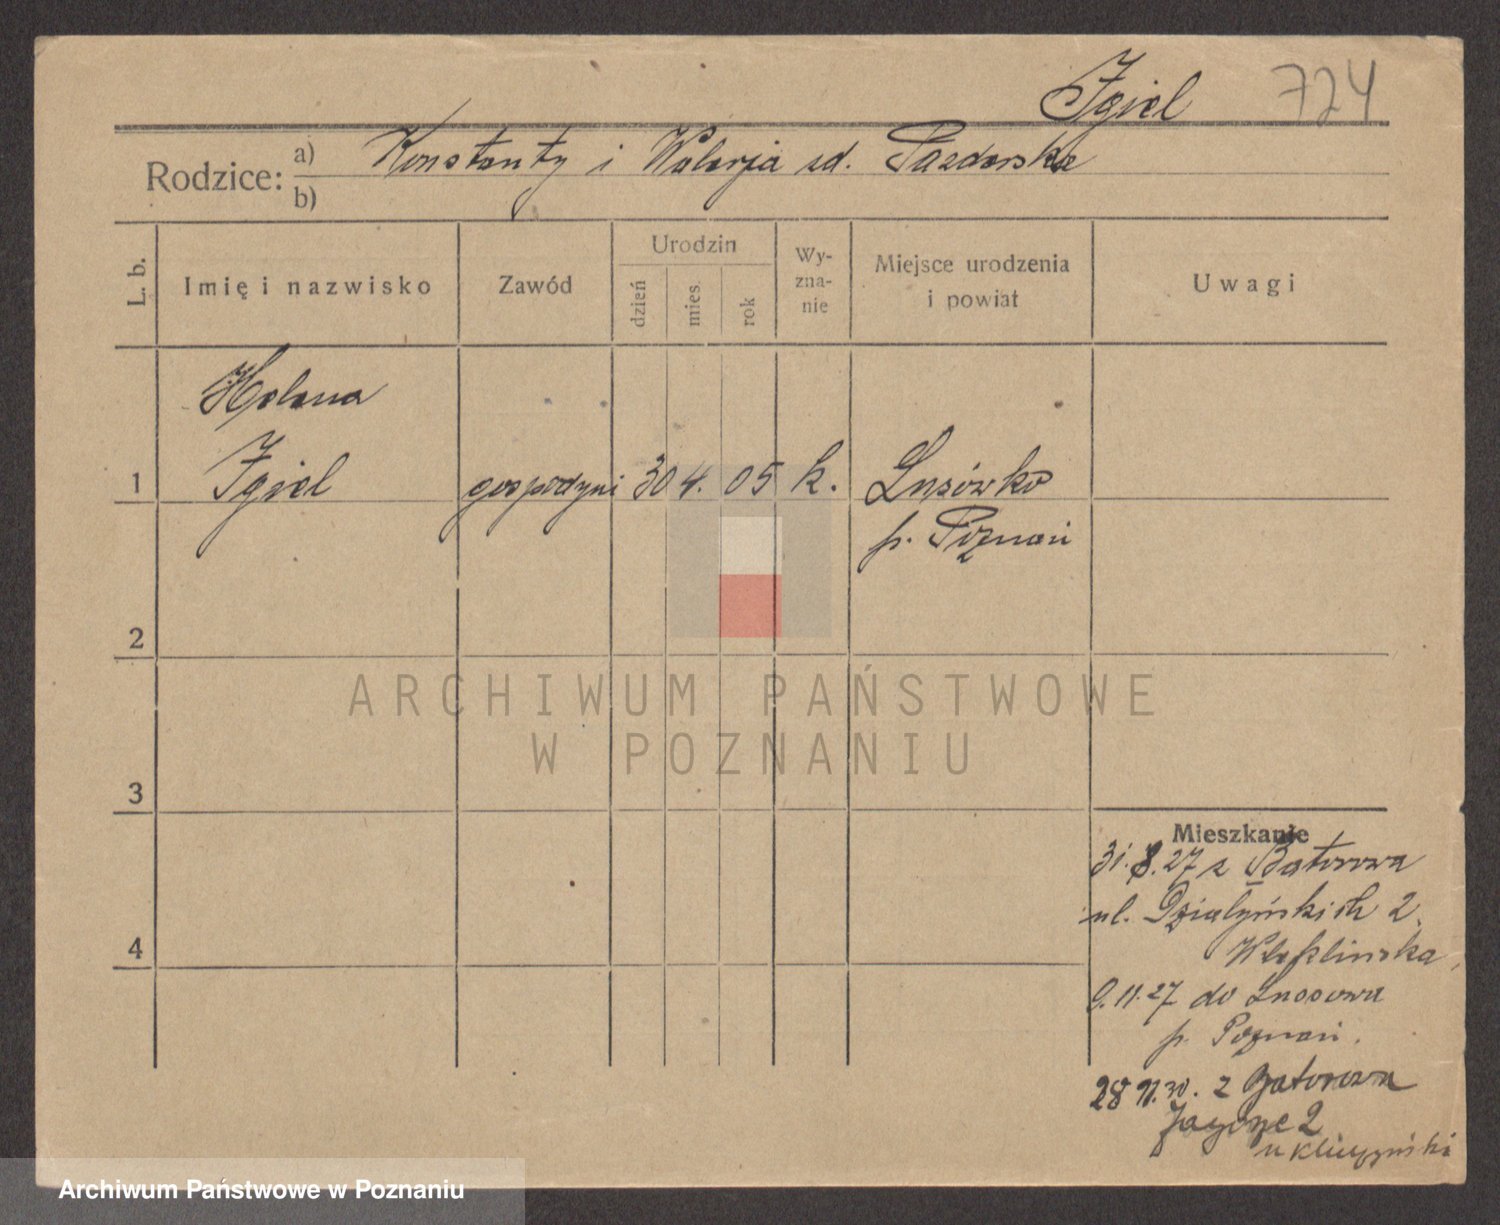 Igiel 724
Rodzice: a) Konstanty i Walerja zd. Pazderska
b)
L. b. Imię i nazwisko Zawód Urodzin dzień mies. rok Wy-zna-nie Miejsce urodzenia i powiat Uwagi
Helena
1 Igiel gospodyni 30 4. 05 k. Lusówko
p. Poznań
2
ARCHIWUM PAŃSTWOWE
W POZNANIU
3
Mieszkanie
31.8.27 z Batorowa
4 ul. Działyńskich 2.
9.11.27 do Lusowa
p. Poznań.
28 11.30. z Batorowa
2
u
Archiwum Państwowe w Poznaniu